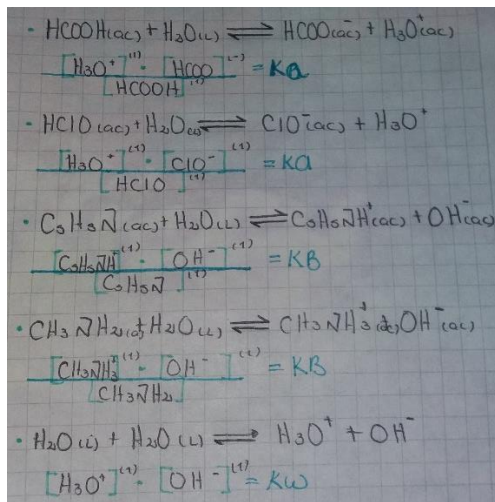 · HCOOH(ac) + H3O(L) ⇌ HCOO(ac)⁻ + H3O⁺(ac)
[H3O⁺]⁽¹⁾ · [HCOO]⁽⁻⁾ = Ka
[HCOOH]⁽¹⁾
· HClO(ac) + H2O(L) ⇌ ClO⁻(ac) + H3O⁺
[H3O⁺]⁽¹⁾ · [ClO⁻]⁽¹⁾ = Ka
[HClO]⁽¹⁾
· C5H5N(ac) + H2O(L) ⇌ C5H5NH⁺(ac) + OH⁻(ac)
[C5H5NH]⁽¹⁾ · [OH⁻]⁽¹⁾ = KB
[C5H5N]⁽¹⁾
· CH3NH2(ac) + H2O(L) ⇌ CH3NH3⁺(ac) + OH⁻(ac)
[CH3NH3⁺]⁽¹⁾ · [OH⁻]⁽¹⁾ = KB
[CH3NH2]
· H2O(L) + H2O(L) ⇌ H3O⁺ + OH⁻
[H3O⁺]⁽¹⁾ · [OH⁻]⁽¹⁾ = Kw